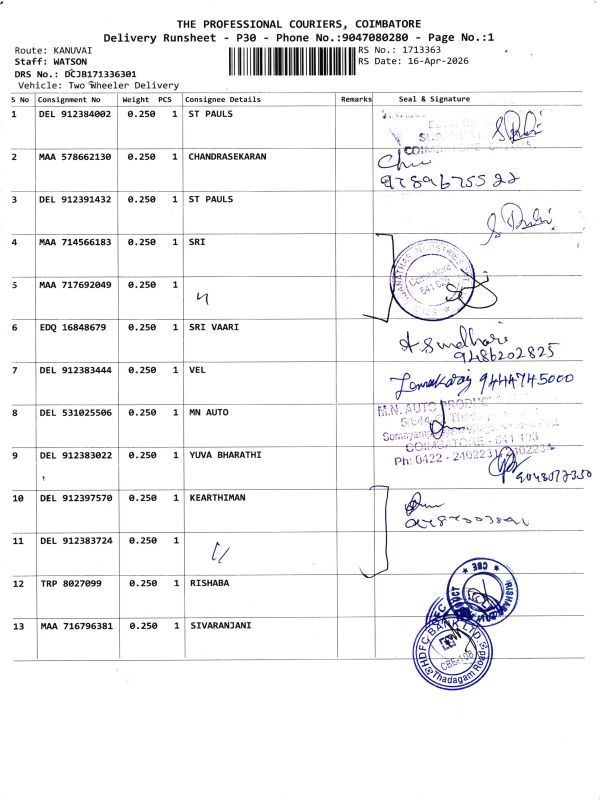 THE PROFESSIONAL COURIERS, COIMBATORE
Delivery Runsheet - P30 - Phone No.:9047080280 - Page No.:1
Route: KANUVAI RS No.: 1713363
Staff: WATSON RS Date: 16-Apr-2026
DRS No.: DCJB171336301
Vehicle: Two Wheeler Delivery
S No Consignment No Weight PCS Consignee Details Remarks Seal & Signature
1 DEL 912384002 0.250 1 ST PAULS
2 MAA 578662130 0.250 1 CHANDRASEKARAN
9789675522
3 DEL 912391432 0.250 1 ST PAULS
4 MAA 714566183 0.250 1 SRI
Coimbatore
5 MAA 717692049 0.250 1 〃
6 EDQ 16848679 0.250 1 SRI VAARI
9486202825
7 DEL 912383444 0.250 1 VEL
9444745000
8 DEL 531025506 0.250 1 MN AUTO
M.N. AUTO PRODUCT
COIMBATORE - 641 103
Ph: 0422 - 2402231
9 DEL 912383022 0.250 1 YUVA BHARATHI
10 DEL 912397570 0.250 1 KEARTHIMAN
11 DEL 912383724 0.250 1 〃
12 TRP 8027099 0.250 1 RISHABA
* CBE *
13 MAA 716796381 0.250 1 SIVARANJANI
HDFC BANK LTD.
CBE-108
Thadagam Road